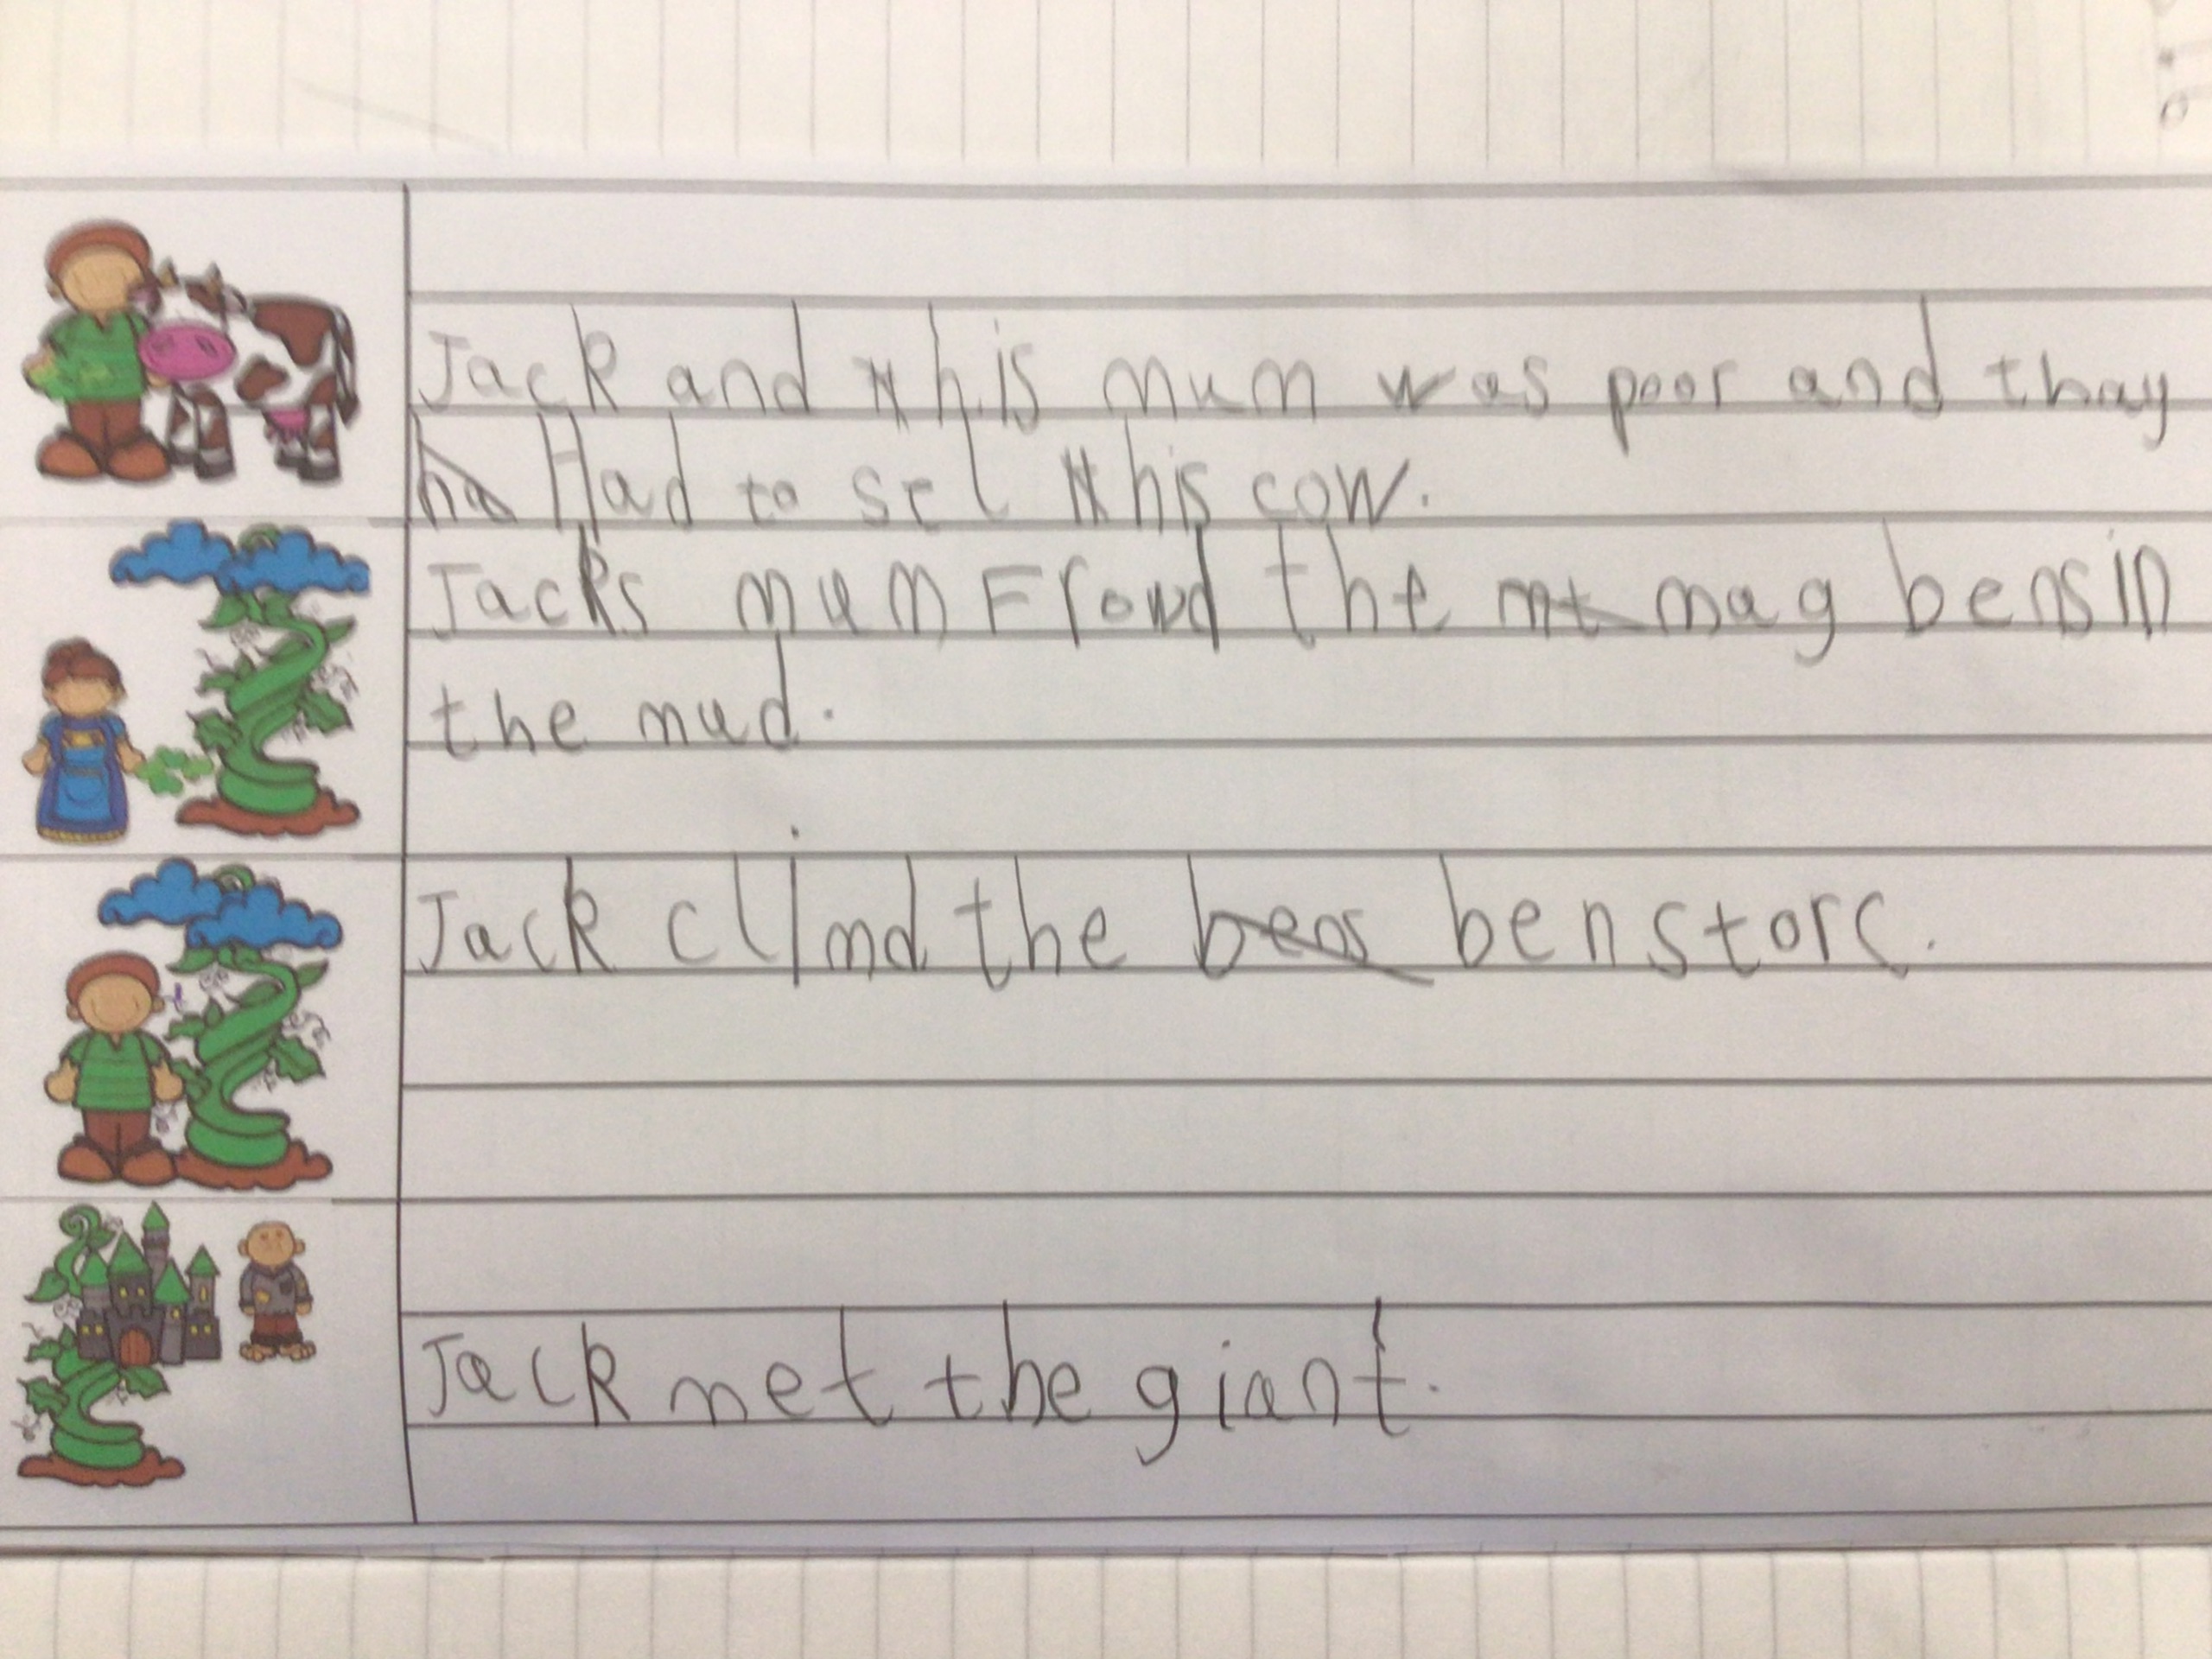 Jack and his mum was poor and thay
Had to sel his cow.
Jacks mum Frowd the mag bens in
the mud.
Jack climd the benstorc.
Jack met the giant.